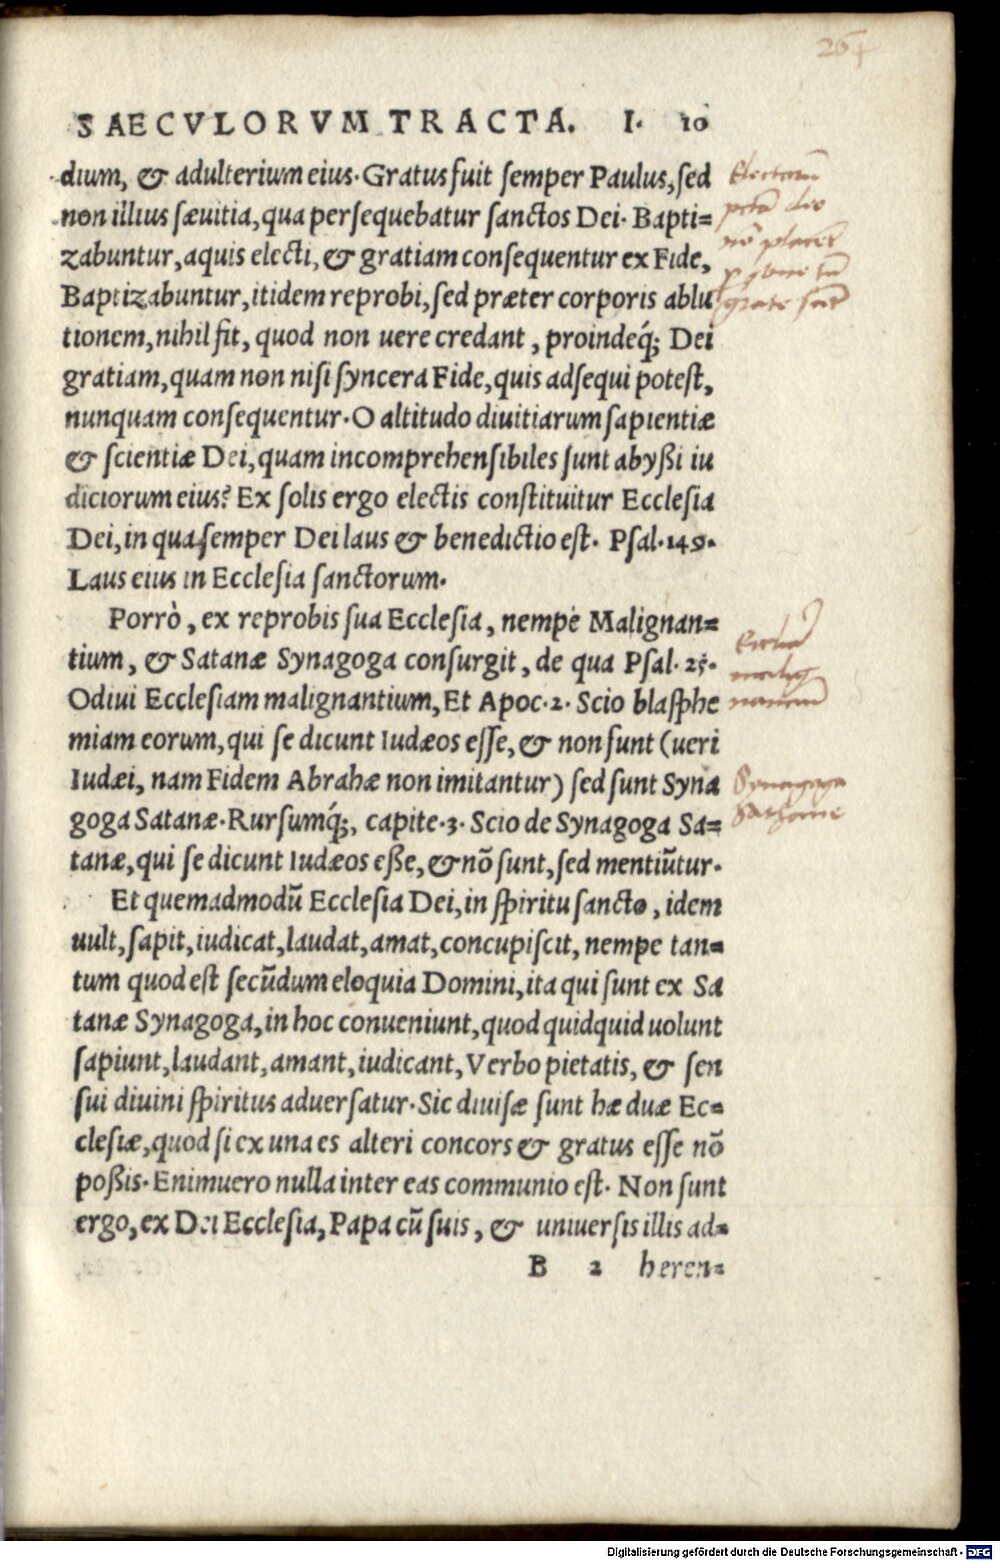 264
SAECVLORVM TRACTA. I. 10
dium, & adulterium eius. Gratus fuit semper Paulus, sed
non illius sæuitia, qua persequebatur sanctos Dei. Bapti=
zabuntur, aquis electi, & gratiam consequentur ex Fide,
Baptizabuntur, itidem reprobi, sed præter corporis ablu
tionem, nihil fit, quod non uere credant, proindeq́; Dei
gratiam, quam non nisi syncera Fide, quis adsequi potest,
nunquam consequentur. O altitudo diuitiarum sapientiæ
& scientiæ Dei, quam incomprehensibiles sunt abyßi iu
diciorum eius? Ex solis ergo electis constituitur Ecclesia
Dei, in qua semper Dei laus & benedictio est. Psal. 149.
Laus eius in Ecclesia sanctorum.
Porrò, ex reprobis sua Ecclesia, nempe Malignan=
tium, & Satanæ Synagoga consurgit, de qua Psal. 25.
Odiui Ecclesiam malignantium, Et Apoc. 2. Scio blasphe
miam eorum, qui se dicunt Iudæos esse, & non sunt (ueri
Iudæi, nam Fidem Abrahæ non imitantur) sed sunt Syna
goga Satanæ. Rursumq́;, capite. 3. Scio de Synagoga Sa=
tanæ, qui se dicunt Iudæos eße, & nō sunt, sed mentiūtur.
Et quemadmodū Ecclesia Dei, in spiritu sancto, idem
uult, sapit, iudicat, laudat, amat, concupiscit, nempe tan=
tum quod est secūdum eloquia Domini, ita qui sunt ex Sa
tanæ Synagoga, in hoc conueniunt, quod quidquid uolunt
sapiunt, laudant, amant, iudicant, Verbo pietatis, & sen
sui diuini spiritus aduersatur. Sic diuisæ sunt hæ duæ Ec=
clesiæ, quod si ex una es alteri concors & gratus esse nō
poßis. Enimuero nulla inter eas communio est. Non sunt
ergo, ex Dei Ecclesia, Papa cū suis, & uniuersis illis ad=
B 2 heren=
Synagoga
Sathanæ
Digitalisierung gefördert durch die Deutsche Forschungsgemeinschaft - DFG